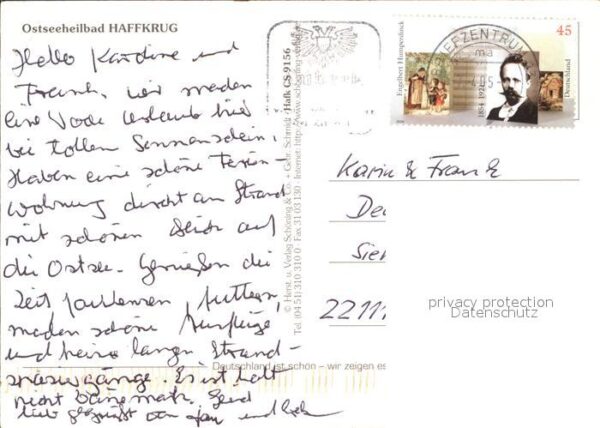 Ostseeheilbad HAFFKRUG
Hallo Karoline und
Frank, wir machen
eine Woche Urlaub hier
bei tollem Sonnenschein.
Haben eine schöne Ferien-
wohnung direkt am Strand
mit schönem Blick auf
die Ostsee. Genießen die
Zeit faulenzen, futtern,
machen schöne Ausflüge
und lange Strand-
spaziergänge. Es ist halt
nicht Dänemark. Seid
lieb gegrüßt von und
© Herst. u. Verlag Schöning & Co. + Gebr. Schmidt · Hafk CS 9156
Tel. (04 51) 310 310 0 · Fax 31 03 130 · Internet: http://www.schoening-verlag.
Deutschland ist schön – wir zeigen es
BRIEFZENTRUM
Engelbert Humperdinck
1854 1921
45
Deutschland
Karin & Frank
22111
privacy protection
Datenschutz